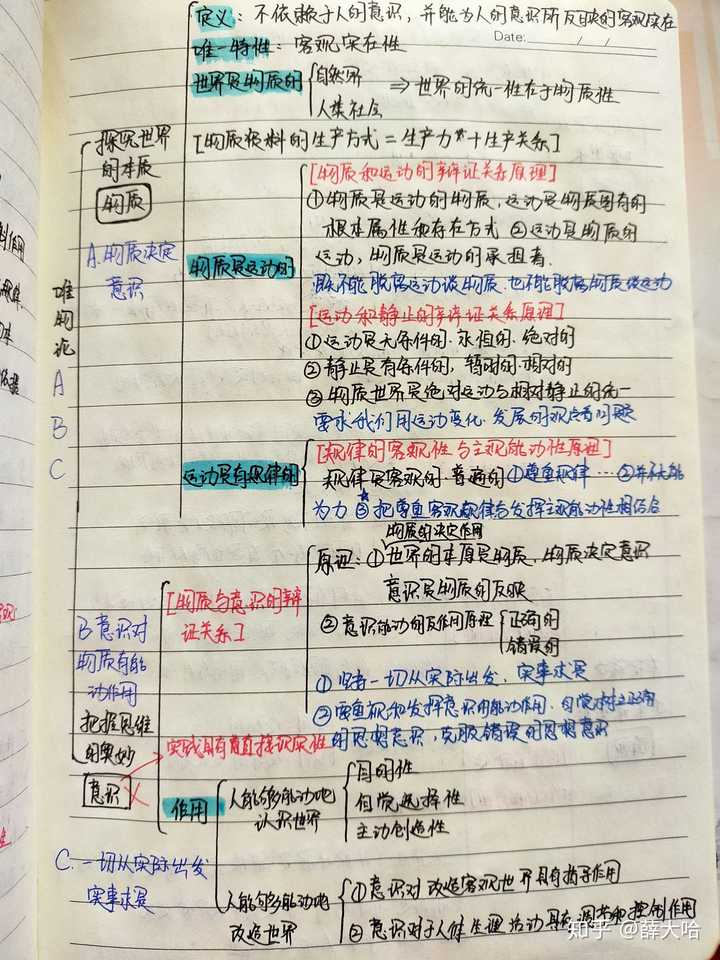 定义：不依赖于人的意识，并能为人的意识所反映的客观实在
Date:
唯一特性：客观实在性
世界是物质的
自然界
人类社会
⇒世界的统一性在于物质性
[物质资料的生产方式=生产力*+生产关系]
探究世界
的本质
物质
A.物质决定
意识
唯物论
A
B
C
物质是运动的
[物质和运动的辩证关系原理]
①物质是运动的物质，运动是物质固有的
根本属性和存在方式 ②运动是物质的
运动，物质是运动的承担者.
既不能脱离运动谈物质.也不能脱离物质谈运动
[运动和静止的辩证关系原理]
①运动是无条件的.永恒的.绝对的
②静止是有条件的，暂时的.相对的
③物质世界是绝对运动与相对静止的统一
要求我们用运动变化.发展的观点看问题
运动是有规律的
[规律的客观性与主观能动性原理]
规律是客观的.普遍的①尊重规律…②并不无能
为力 ③把尊重客观规律与发挥主观能动性相结合
物质的决定作用
原理：①世界的本原是物质，物质决定意识
意识是物质的反映
[物质与意识的辩
证关系]
②意识能动的反作用原理
正确的
错误的
B意识对
物质有能
动作用
把握思维
的奥妙
意识
①坚持一切从实际出发，实事求是
②要重视和发挥意识的能动作用.自觉树立正确
的思想意识，克服错误的思想意识
实践具有直接现实性
作用
人能够能动地
认识世界
目的性
自觉选择性
主动创造性
C.一切从实际出发
实事求是
人能够能动地
改造世界
①意识对改造客观世界具有指导作用
②意识对于人体生理活动具有调节和控制作用
知乎 @薛大哈